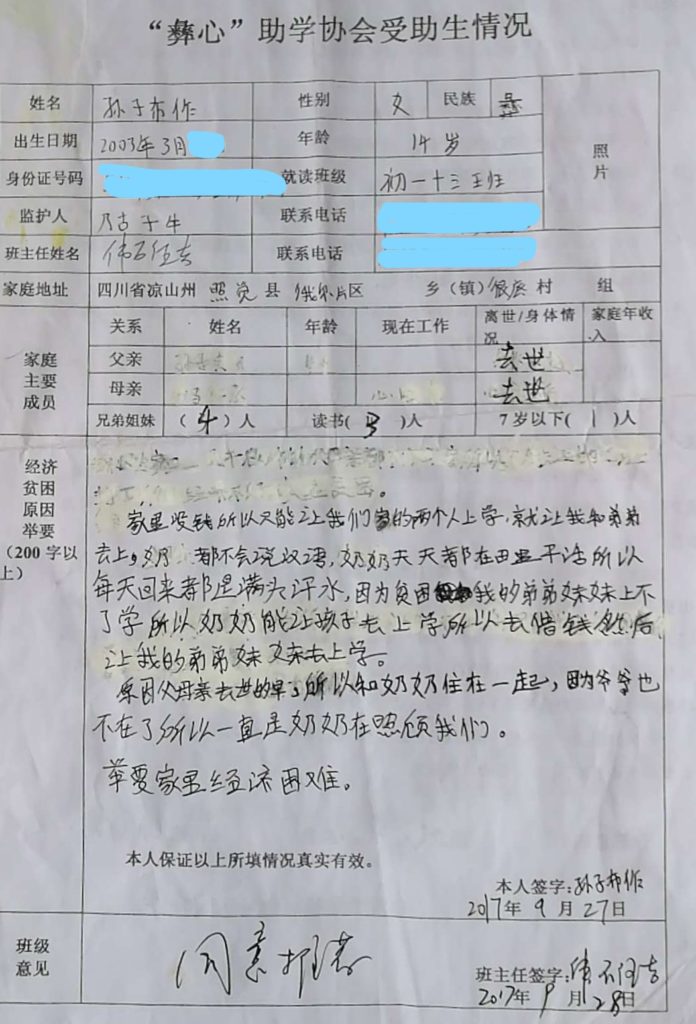 “彝心”助学协会受助生情况
姓名 孙子布作 性别 女 民族 彝
出生日期 2003年3月 年龄 14岁 照片
身份证号码 就读班级 初一十三班
监护人 联系电话
班主任姓名 联系电话
家庭地址 四川省凉山州 昭觉 县 片区 乡(镇) 村 组
家庭主要成员 关系 姓名 年龄 现在工作 离世/身体情况 家庭年收入
父亲 去世
母亲 去世
兄弟姐妹 (4)人 读书(3)人 7岁以下(1)人
经济贫困原因举要(200字以上)
家里没钱所以只能让我们家的两个人上学,就让我和弟弟
去上,奶 都不会说汉语,奶奶天天都在田里干活所以
每天回来都是满头汗水,因为贫困 我的弟弟妹妹上不
了学所以奶奶能让孩子去上学所以去借钱然后
让我的弟弟妹妹去上学。
原因父母亲去世的早了所以和奶奶住在一起,因为爷爷也
不在了所以一直是奶奶在照顾我们。
举要家里经济困难。
本人保证以上所填情况真实有效。
本人签字:孙子布作
2017年9月27日
班级意见 同意
班主任签字:
2017年9月28日